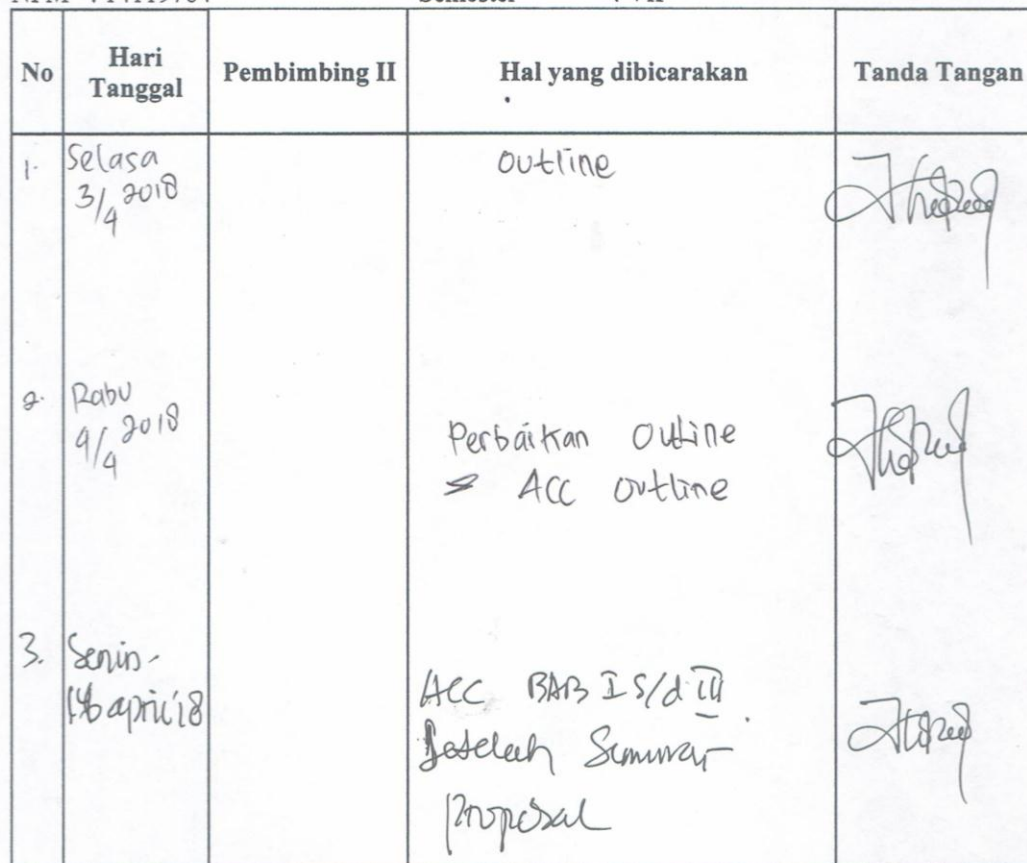 No Hari Tanggal Pembimbing II Hal yang dibicarakan Tanda Tangan
1. Selasa outline
3/4 2018
2. Rabu
4/4 2018 Perbaikan Outline
ACC outline
3. Senin
16 april '18 ACC BAB I S/d III
Setelah Seminar
Proposal